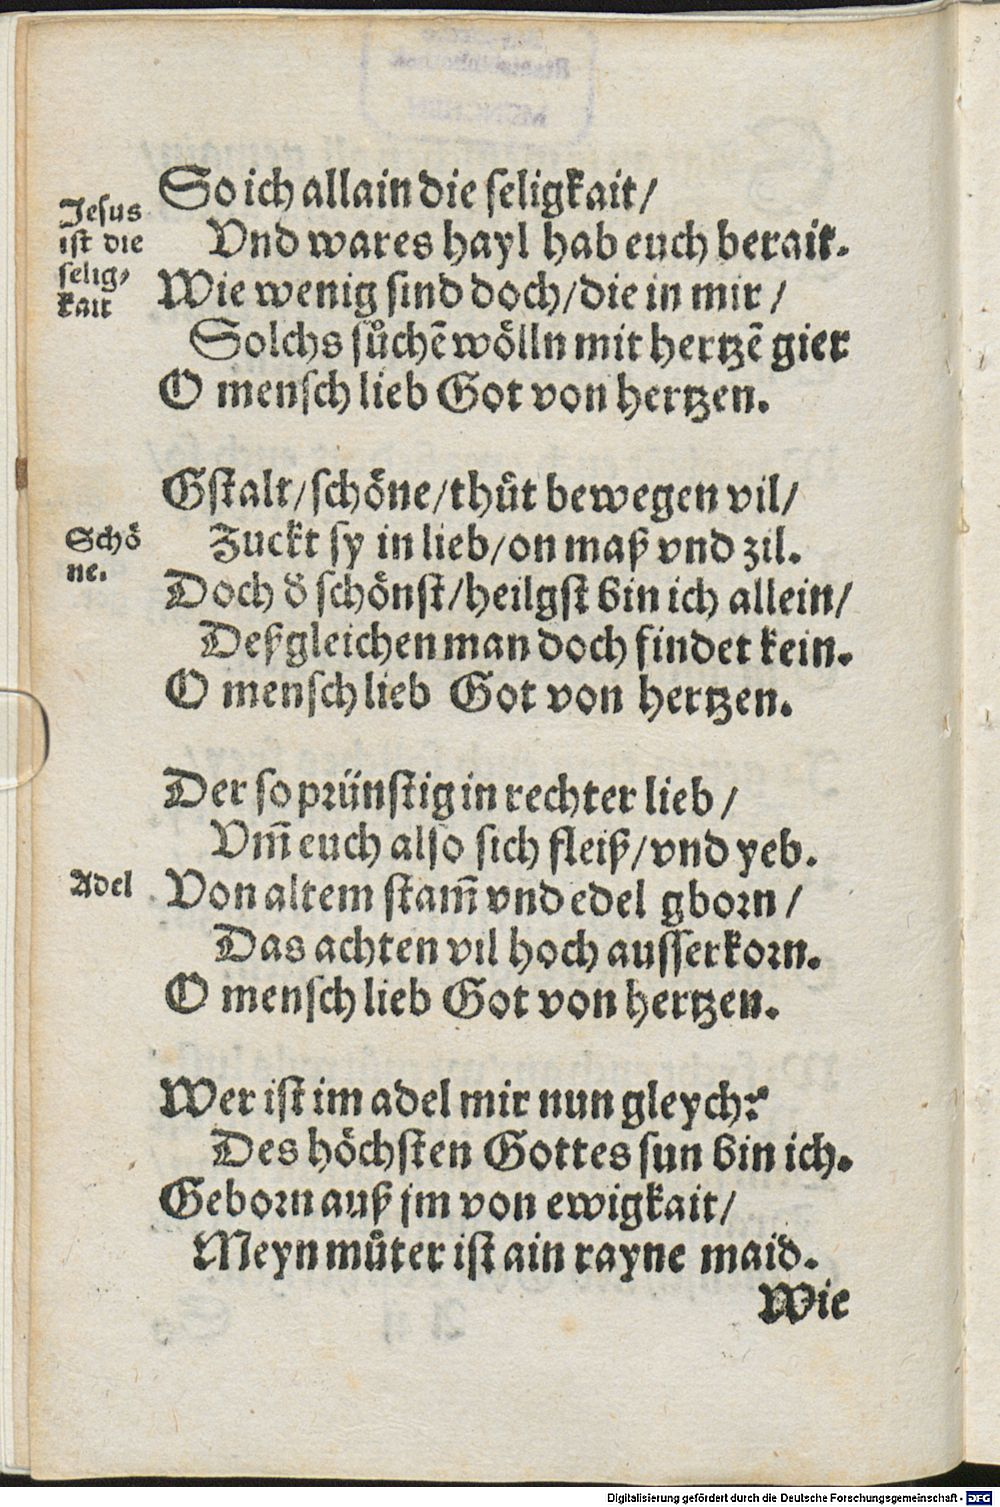 So ich allain die seligkait/
Jesus
ist die
selig⸗
kait
Vnd wares hayl hab euch berait.
Wie wenig sind doch/die in mir /
Solchs sůchē wölln mit hertzē gier
O mensch lieb Got von hertzen.
Gstalt/schöne/thůt bewegen vil/
Schö
ne.
Zuckt sy in lieb/on maß vnd zil.
Doch d̕ schönst/heilgst bin ich allein/
Deßgleichen man doch findet kein.
O mensch lieb Got von hertzen.
Der so prünstig in rechter lieb /
Vm̄ euch also sich fleiß/vnd yeb.
Adel
Von altem stam̄ vnd edel gborn /
Das achten vil hoch ausserkorn.
O mensch lieb Got von hertzen.
Wer ist im adel mir nun gleych?
Des höchsten Gottes sun bin ich.
Geborn auß jm von ewigkait/
Meyn můter ist ain rayne maid.
Wie
Digitalisierung gefördert durch die Deutsche Forschungsgemeinschaft - DFG